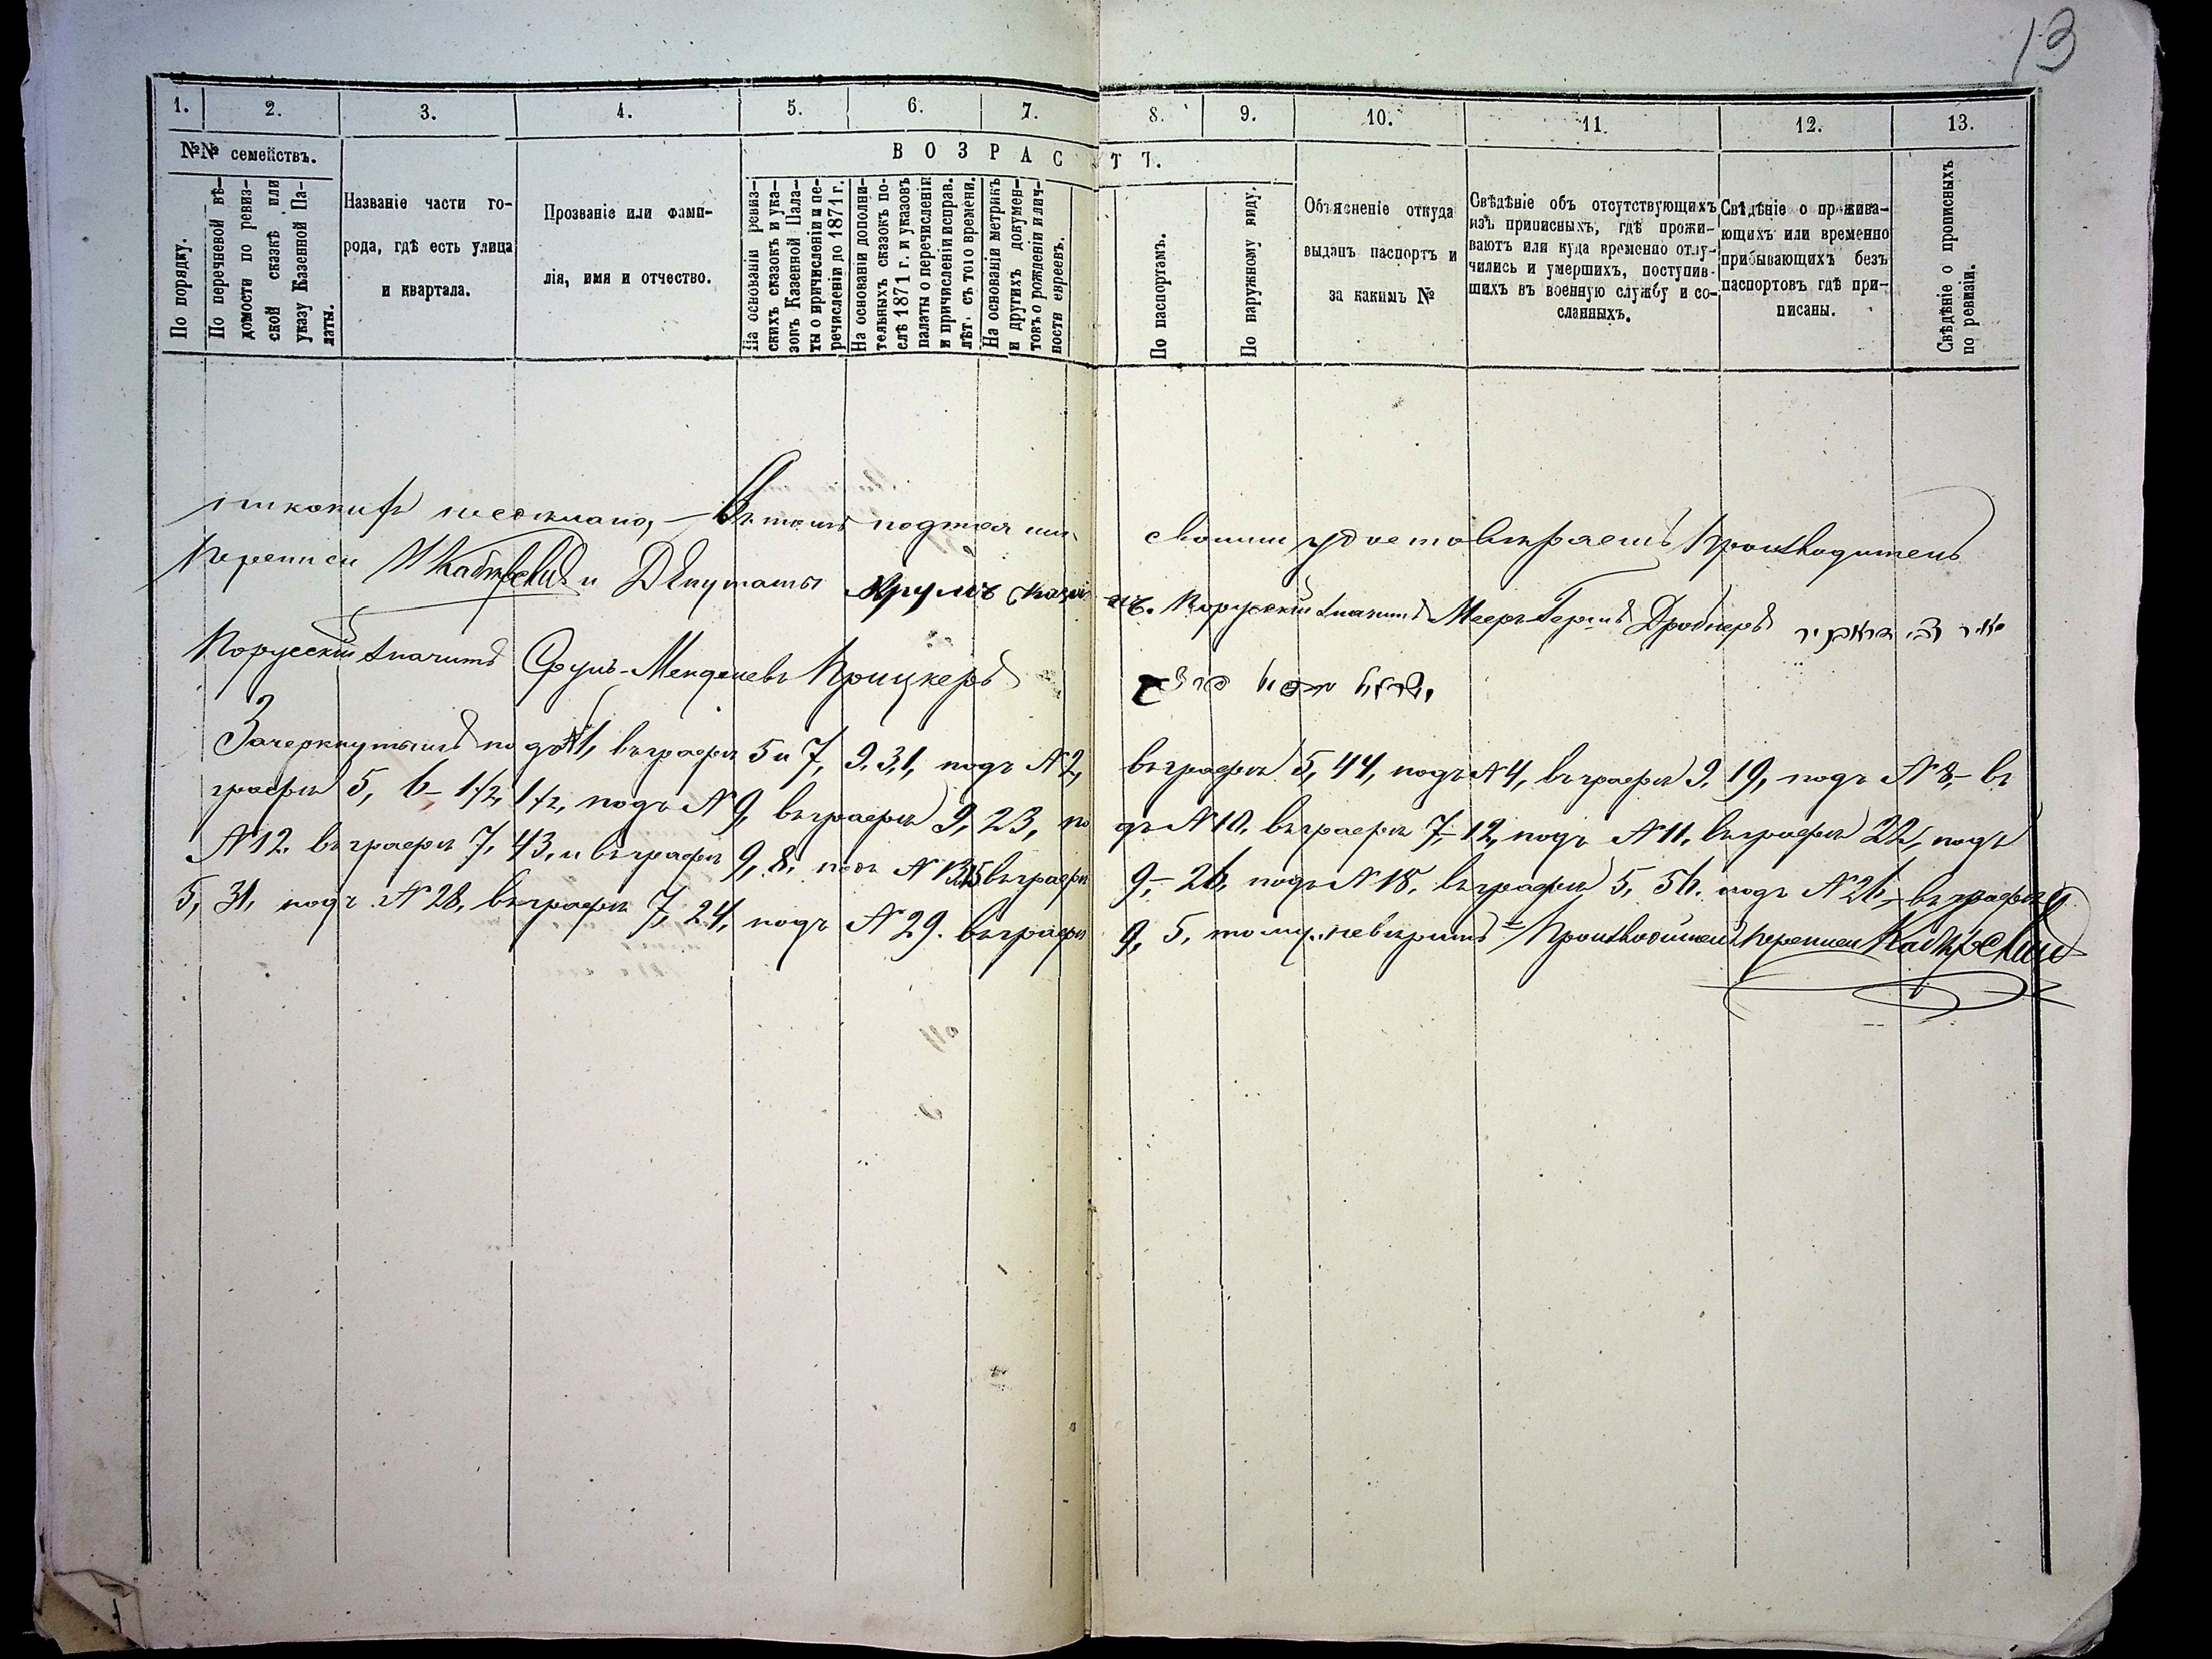 13
1. 2. 3. 4. 5. 6. 7. 8. 9. 10. 11. 12. 13.
№№ семействъ.
В О З Р А С Т Ъ.
По порядку.
По перечневой вѣ-
домости по ревиз-
ской сказкѣ или
указу Казенной Па-
латы.
Названіе части го-
рода, гдѣ есть улица
и квартала.
Прозваніе или фами-
лія, имя и отчество.
На основаніи ревиз-
скихъ сказокъ и ука-
зовъ Казенной Пала-
ты о причисленіи и пе-
речисленіи до 1871 г.
На основаніи дополни-
тельныхъ сказокъ по-
слѣ 1871 г. и указовъ
палаты о перечисленіи
и причисленіи исправ.
лѣт. съ того времени.
На основаніи метрикъ
и другихъ докумен-
товъ о рожденіи и лич-
ности евреевъ.
По паспортамъ.
По наружному виду.
Объясненіе откуда
выданъ паспортъ и
за какимъ №
Свѣдѣніе объ отсутствующихъ
изъ приписныхъ, гдѣ прожи-
ваютъ или куда временно отлу-
чились и умершихъ, поступив-
шихъ въ военную службу и со-
сланныхъ.
Свѣдѣніе о прожива-
ющихъ или временно
прибывающихъ безъ
паспортовъ гдѣ при-
писаны.
Свѣдѣніе о прописныхъ
по ревизіи.
Въ томъ подписями своими удостовѣряемъ Производитель
Переписи и Депутаты Порусскій значитъ Мееръ Гершъ Дробнеръ
Порусскій значитъ Сруль-Менделевъ Крицкеръ
Зачеркнутымъ подъ №1, въ графѣ 5 и 7, 9. 31, подъ №2, въ графѣ 5, 44, подъ №4, въ графѣ 9. 19, подъ №8,- въ
графѣ 5, 6- 1 1/2, 1 1/2, подъ №9, въ графѣ 9, 23, подъ №10, въ графѣ 7,-12, подъ №11, въ графѣ 22, подъ
№12. въ графѣ 7, 43, и въ графѣ 9, 8, въ графѣ 9,- 26, подъ №18, въ графѣ 5, 56. подъ №26,- въ графѣ
5, 31, подъ №28, въ графѣ 7, 24, подъ №29. въ графѣ 9, 5, тому невѣрить = Производитель переписи